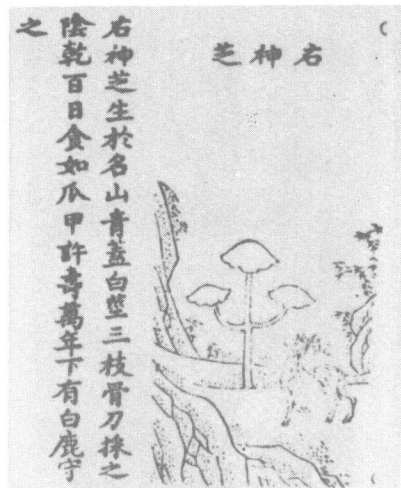 右神芝
右神芝生於名山青蓋白莖三枝骨刀採之
陰乾百日食如瓜甲許壽萬年下有白鹿守
之